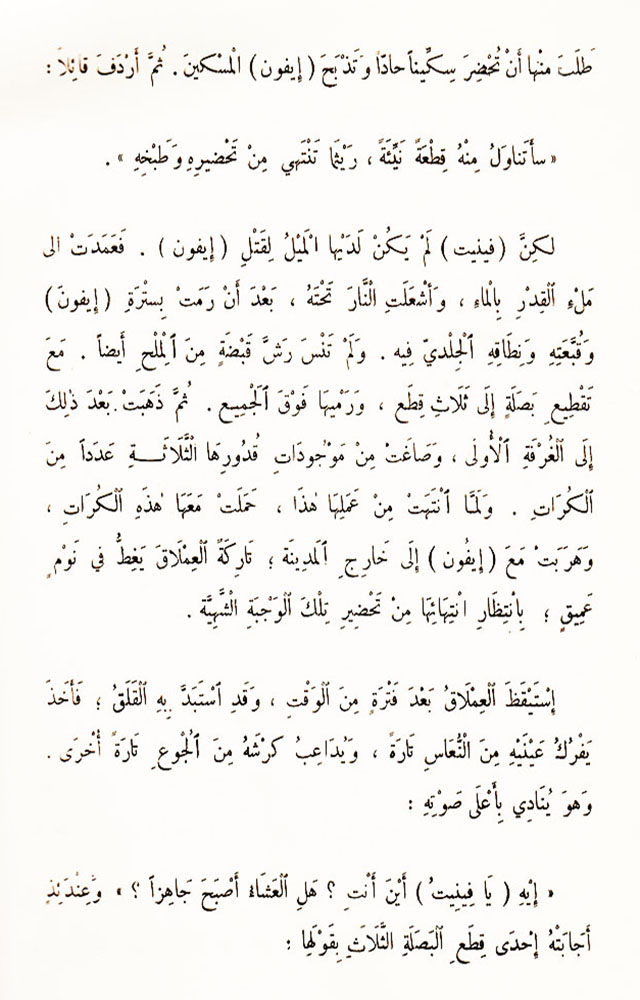 طَلَبَ مِنْها أَنْ تُحْضِرَ سِكِّيناً حادّاً وَتَذْبَحَ (إيفون) الْمَسْكينَ. ثُمَّ أَرْدَفَ قائِلاً:
«سأَتَناوَلُ مِنْهُ قِطْعَةً نَيِّئَةً، رَيْثَما تَنْتَهي مِنْ تَحْضيرِهِ وَطَبْخِهِ».
لكِنَّ (فينيت) لَمْ يَكُنْ لَدَيْها الْمَيْلُ لِقَتْلِ (إيفون). فَعَمَدَتْ الى
مَلْءِ ٱلْقِدْرِ بِالْماءِ، وَأَشْعَلَتِ الْنَّارَ تَحْتَهُ، بَعْدَ أَنْ رَمَتْ بِسُتْرَةِ (إيفونَ)
وَقُبَّعَتِهِ وَنِطَاقِهِ ٱلْجِلْديّ فِيه. وَلَمْ تَنْسَ رَشَّ قَبْضَةٍ مِنَ ٱلْمِلْحِ أَيضاً. مَعَ
تَقْطيعِ بَصَلَةٍ إِلَى ثَلَاثِ قِطَعٍ، وَرَمْيِهَا فَوْقَ ٱلْجَمِيعِ. ثُمَّ ذَهَبَتْ بَعْدَ ذٰلِكَ
إِلَى ٱلْغُرْفَةِ ٱلْأُولَى، وَصَاغَتْ مِنْ مَوْجُودَاتِ قُدُورِهَا الْثَّلَاثَـــةِ عَدَداً مِنَ
ٱلْكُرَاتِ. وَلَمَّا ٱنْتَهَتْ مِنْ عَمَلِهَا هٰذَا، حَمَلَتْ مَعَهَا هٰذِهِ ٱلْكُرَاتِ،
وَهَرَبَتْ مَعَ (إيفُون) إِلَى خَارِجِ ٱلْمَدِينَة؛ تَارِكَةً ٱلْعِمْلَاقَ يَغِطُّ في نَوْمٍ
عَمِيقٍ؛ بِٱنْتِظَارِ انْتِهَائِهَا مِنْ تَحْضِيرِ تِلْكَ ٱلْوَجْبَةِ الْشَّهِيَّة.
إِسْتَيْقَظَ ٱلْعِمْلَاقُ بَعْدَ فَتْرَةٍ مِنَ ٱلْوَقْتِ، وَقَدِ ٱسْتَبَدَّ بِهِ ٱلْقَلَقُ؛ فَأَخَذَ
يَفْرُكُ عَيْنَيْهِ مِنَ الْنُّعَاسِ تَارَةً، وَيُدَاعِبُ كَرْشَهُ مِنَ ٱلْجُوعِ تَارَةً أُخْرَى.
وَهوَ يُنَادِي بِأَعْلَى صَوْتِهِ:
«إِيْهِ (يَا فِينِيتُ) أَيْنَ أَنْتِ؟ هَلِ ٱلْعَشَاءُ أَصْبَحَ جَاهِزاً؟» وَعِنْدَئِذٍ
أَجَابَتْهُ إِحْدَى قِطَعِ ٱلْبَصَلَةِ الْثَّلَاثِ بِقَوْلِهَا: